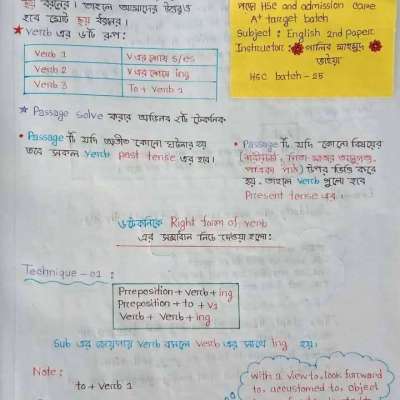 হবে মোট ছয় ধরনের।
★ Verb এর ৬টি রূপ:
Verb 1 V এর সাথে s/es
Verb 2 V এর সাথে ing
Verb 3 To + Verb 1
HSC and admission care
A+ target batch
Subject : English 2nd paper
Instructor :
ভাইয়া
HSC batch - 25
★ Passage Solve করার অভিনব ২টি টেকনিক
• Passage টি যদি অতীত কোনো ঘটনার হয়
তবে সকল Verb past tense এর হবে।
• Passage টি যদি কোনো বিষয়ের
উপর ভিত্তি করে
হয়, তাহলে verb গুলো হবে
Present tense এর।
৬টি টেকনিকে Right form of verb
এর সমাধান নিচে দেওয়া হলো:
Technique - 01 :
Preposition + verb + ing
Preposition + to + V1
Verb + Verb + ing
Sub এর জায়গায় verb বসলে verb এর সাথে ing হয়।
Note :
to + verb 1
With a view to, look forward
to, accustomed to, object